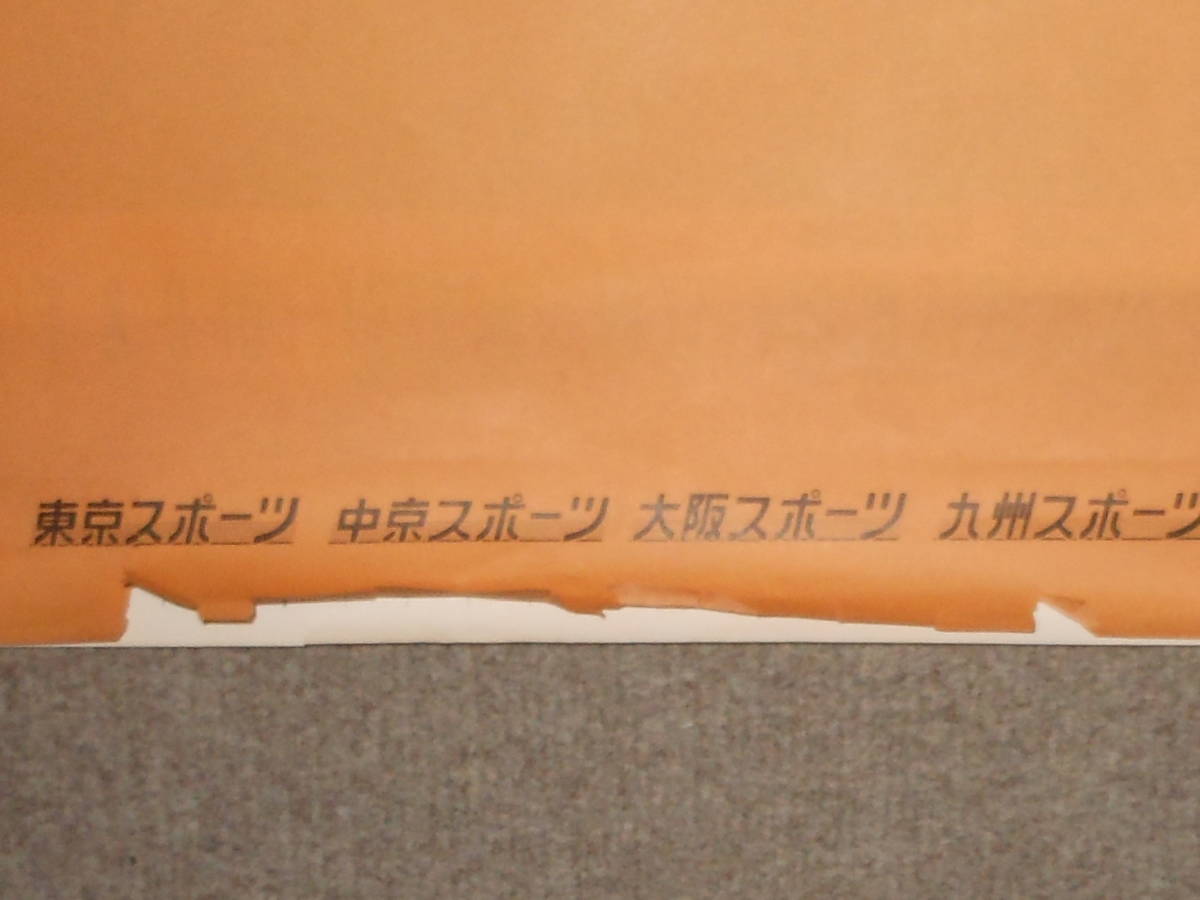 東京スポーツ 中京スポーツ 大阪スポーツ 九州スポーツ